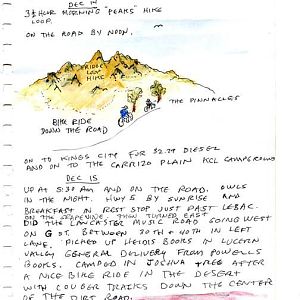 DEC 14
3½ HOUR MORNING "PEAKS" HIKE
LOOP.
ON THE ROAD BY NOON.
RIDGE
LOOP
HIKE
THE PINNACLES
BIKE RIDE
DOWN THE ROAD
ON TO KINGS CITY FOR $2.79 DIESEL
AND ON TO THE CARRIZO PLAIN KCL CAMPGROUND
DEC 15
UP AT 5:30 AM AND ON THE ROAD. OWLS
IN THE NIGHT. HWY 5 BY SUNRISE AND
BREAKFAST IN REST STOP JUST PAST LEBAC.
ON THE GRAPEVINE. THEN TURNED EAST
DID THE LANCASTER MUSIC ROAD GOING WEST
ON G ST. BETWEEN 30TH & 40TH IN LEFT
LANE. PICKED UP HEIDIS BOOKS IN LUCERN
VALLEY GENERAL DELIVERY FROM POWELLS
BOOKS. CAMPED IN JOSHUA TREE AFTER
A NICE BIKE RIDE IN THE DESERT
WITH COUGER TRACKS DOWN THE CENTER
OF THE DIRT ROAD.